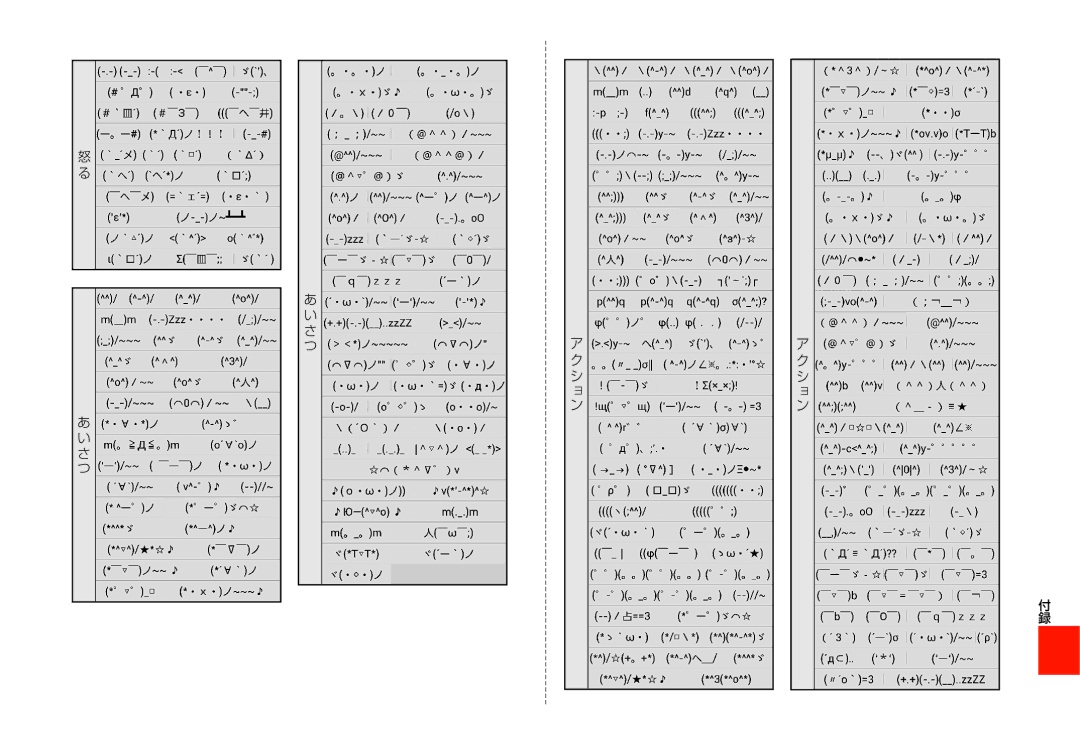 怒る
(-.-) (-_-) :-( :-< (￣^￣) ゞ(`')、
(#゜Д゜) (・ε・) (-"”-;)
(#｀皿´) (#￣З￣) (((￣へ￣井)
(ー。ー#) (*｀Д´)ノ！！！ (-_-#)
(｀_´メ) (｀´) (｀□´) (｀Δ´)
(｀へ´) (`ヘ´*)ノ (｀ロ´;)
(￣ヘ￣メ) (=｀ェ´=) (・ε・｀)
('ε'*) (ノ-_-)ノ~┻━┻
(ノ｀△´)ノ <(｀^´)> o(｀^´*)
ι(｀ロ´)ノ Σ(￣皿￣;; ゞ(｀´)
あいさつ
(^^)/ (^-^)/ (^_^)/ (^o^)/
m(__)m (-.-)Zzz・・・・ (/_;)/~~
(;_;)/~~~ (^^ゞ (^-^ゞ (^_^)/~~
(^_^ゞ (^∧^) (^3^)/
(^o^)／~~ (^o^ゞ (^人^)
(-_-)/~~~ (⌒0⌒)／~~ \(__)
(*・∀・*)ノ (^-^)ゝ゛
m(。≧Д≦。)m (o´∀`o)ノ
('ー')/~~ (￣ー￣)ノ (*・ω・)ノ
(´∀`)/~~ (v^-゜)♪ (--)//~
(*^ー゜)ノ (*゜ー゜)ゞ⌒☆
(*^^*ゞ (*^―^)ノ♪
(*^▽^)/★*☆♪ (*￣∇￣)ノ
(*￣▽￣)ノ~~ ♪ (*´∀｀)ノ
(*゜▽゜)_□ (*・x・)ノ~~~♪
あいさつ
(。・。・)ノ (。・_・。)ノ
(。・x・)ゞ♪ (。・ω・。)ゞ
(/。\) (/0￣) (/o\)
(；_；)/~~ (＠^＾)／~~~
(@^^)/~~~ (＠＾＾＠)／
(＠^▽゜＠)ゞ (^.^)/~~~
(^.^)ノ (^^)/~~~ (^ー゜)ノ (^ー^)ノ
(^o^)／ (^O^)／ (-_-).。oO
(-_-)zzz (｀―´ゞ-☆ (｀◇´)ゞ
(￣ー￣ゞ-☆ (￣▽￣)ゞ (￣0￣)/
(￣q￣)ｚｚｚ (´ー｀)ノ
(´・ω・`)/~~ ('ー')/~~ ('-'*)♪
(+.+)(-.-)(__)..zzZZ (>_<)/~~
(＞＜*)ノ~~~~~ (⌒∇⌒)ノ"
(⌒∇⌒)ノ"" (゜◇゜)ゞ (・∀・)ノ
(・ω・)ノ (・ω・｀=)ゞ (・д・)ノ
(-o-)/ (o゜◇゜)ゝ (o・・o)/~
\(´O｀)／ \(・o・)／
_(._.)_ _(._.)_ |^▽^)ノ <(_ _*)>
☆⌒(*＾∇゜)v
♪(o・ω・)ノ)) ♪v(*'-^*)^☆
♪Ю―(^▽^o)♪ m(._.)m
m(。_。)m 人(￣ω￣;)
ヾ(*T▽T*) ヾ(´ー｀)ノ
ヾ(・◇・)ノ
アクション
\(^^)／ \(^-^)／ \(^_^)／ \(^o^)／
m(__)m (..) (^^)d (^q^) (__)
:-p ;-) f(^_^) (((^^;) (((^_^;)
(((・・;) (-.-)y-~ (-.-)Zzz・・・・
(-.-)ノ⌒-~ (-。-)y-~ (/_;)/~
(゜゜;)\(--;) (;_;)/~~~ (^。^)y-~
(^^;))) (^^ゞ (^-^ゞ (^_^)/~~
(^_^;))) (^_^ゞ (^∧^) (^3^)/
(^o^)／~~ (^o^ゞ (^a^)-☆
(^人^) (-_-)/~~~ (⌒0⌒)／~~
(・・;))) (゜o゜)\(-_-) ┐('～`;)┌
p(^^)q p(^-^)q q(^-^q) σ(^_^;)?
φ(゜゜)ノ゜ φ(..) φ(．．) (/--)/
(>.<)y-~ へ(^_^) ゞ(`')、 (^-^)ゝ゛
。。(〃_ _)σ∥ (^-^)ノ∠※。.:*:・'°☆
！(￣-￣)ゞ ！Σ(×_×;)!
!щ(゜▽゜щ) ('ー')/~~ (-。-)=3
(＾^)r゛゜ (´∀｀)σ)∀`)
(゜д゜)、;'.・ (´∀`)/~~
(→_→) (°∇^)］ (・_・)ノΞ●~*
(゜ρ゜) (ロ_ロ)ゞ (((((((・・;)
((((ヽ(;^^)/ (((((゜゜;)
(ヾ(´・ω・｀) (゜ー゜)(。_。)
((￣_| ((φ(￣ー￣) (ゝω・´★)
(゜゜)(。。)(゜゜)(。。) (゜-゜)(。_。)
(゜-゜)(。_。)(゜-゜)(。_。) (--)//~
(--)／占==3 (*゜ー゜)ゞ⌒☆
(*ゝ｀ω・) (*/□\*) (^^)(*^-^*)ゞ
(*^^)/☆(+。+*) (*^-^)へ__/ (*^^*ゞ
(*^▽^)/★*☆♪ (*^3(*^o^*)
アクション
(＊^３^)／～☆ (*^o^)／\(^-^*)
(*￣▽￣)ノ~~ ♪ (*￣◇)=3 (*´-`)
(*゜▽゜)_□ (*・・)σ
(*・x・)ノ~~~♪ (*ov.v)o (*T―T)b
(*μ_μ)♪ (--、)ヾ(^^) (-.-)y-゜゜゜
(..)(__) (._.) (-。-)y-゜゜゜
(。-_-。)♪ (。_。)φ
(。・x・)ゞ♪ (。・ω・。)ゞ
(/\)\(^o^)／ (/-\*) (/^^)／
(/^^)/⌒●~* (/_-) (/_;)/
(/0￣) (；_；)/~~ (゜゜;)(。。;)
(;-_-)vo(^-^) (；￢__￢)
(＠＾＾)／~~~ (@^^)/~~~
(＠^▽゜＠)ゞ (^.^)/~~~
(^。^)y-゜゜゜ (^^)／\(^^) (^^)/~~~
(^^)b (^^)v (＾＾)人(＾＾)
(^^;)(;^^) (＾＿-)≡★
(^_^)／□☆□\(^_^) (^_^)∠※
(^_^)-c<^_^;) (^_^)y-゜゜゜゜
(^_^;)\('_') (^|0|^) (^3^)/～☆
(-_-)゜ (゜_゜)(。_。)(゜_゜)(。_。)
(-_-).。oO (-_-)zzz (-_\)
(__)/~~ (｀―´ゞ-☆ (｀◇´)ゞ
(｀Д´≡｀Д´)?? (￣*￣) (￣。￣)
(￣ー￣ゞ-☆(￣▽￣)ゞ (￣▽￣)=3
(￣▽￣)b (￣▽￣=￣▽￣) (￣￢￣)
(￣b￣) (￣O￣) (￣q￣)ｚｚｚ
(´3｀) (´ー`)σ (´・ω・`)/~~ (´ρ`)
(´д⊂).. ('＊') ('ー')/~~
(〃´o｀)=3 (+.+)(-.-)(__)..zzZZ
付録